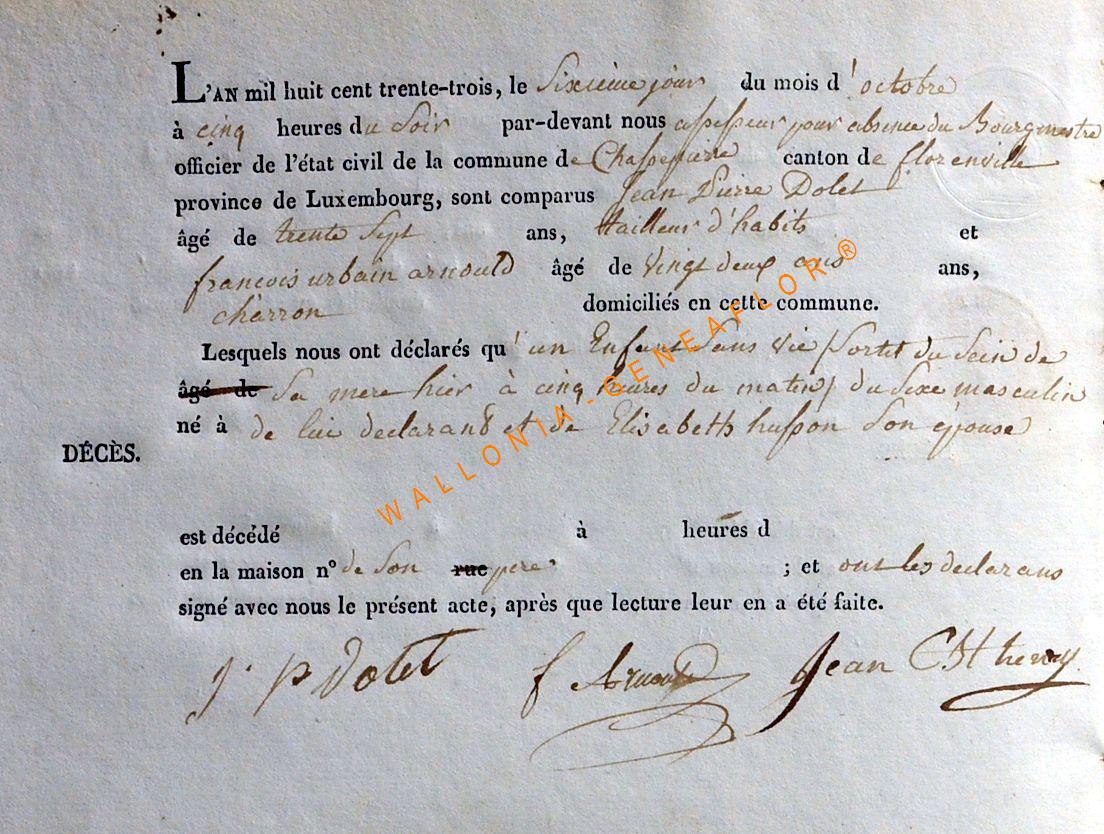 L'AN mil huit cent trente-trois, le Sixième jour du mois d'octobre
à cinq heures du Soir par-devant nous assesseur pour absence du Bourgmestre
officier de l'état civil de la commune de Chassepierre canton de florenville
province de Luxembourg, sont comparus Jean Pierre Dolet
âgé de trente Sept ans, tailleur d'habits et
francois urbain arnould âgé de Vingt deux ans ans,
charron domiciliés en cette commune.
Lesquels nous ont déclarés qu'un Enfant Sans vie /Sortit du Sein de
âgé de Sa mere hier à cinq heures du matin/ du Sexe masculin
né à de lui declarant et de Elisabeth husson Son épouse
DÉCÈS.
est décédé à heures d
en la maison n° de Son rue pere ; et ont les declarans
signé avec nous le présent acte, après que lecture leur en a été faite.
j. p Dolet f Arnould Jean
WALLONIA-GENEAFLOR®